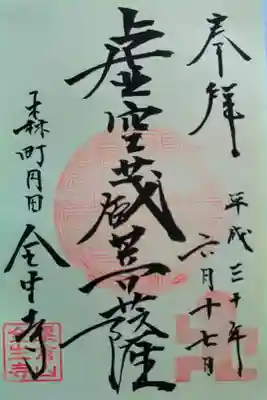 奉拝
平成三十年
六月十七日
虚空蔵菩薩
森町円田
全生寺
全生寺